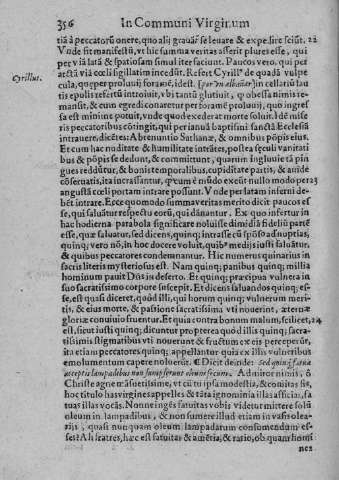 356 In Communi Virginum
tiā à peccatorū onere, quo alij grauār se leuare & expedire sciūt. 22
Vnde fit manifestū, vt hic summa veritas asserit plures esse, qui
per viā latā & spatiosam simul iter faciunt. Paucos vero, qui per
arctā viā cœli sigillatim incedūt. Refert Cyrill⁹ de quadā vulpe
Cyrillus.
cula, quę per proluuij foramē, idest, (per vn albañar) in cellariū lau
tis epulis refertū introiuit, vbi tantū glutiuit, φ obessa nimis re-
mansit, & cum egredi conaretur per foramē proluuij, quo ingres
sa est minime potuit, vnde quod excederat morte soluit. Idē mise
ris peccatoribus cōtingit, qui per ianuā baptismi sanctā Ecclesiā
intrauere, dicētes: Abrenuntio Sathanæ, & omnibus pōpis eius.
Et cum hac nuditate & humilitate intrātes, postea sęculi vanitati
bus & pōpis se dedunt, & committunt, quarum ingluuie tā pin
gues reddūtur, & bonis temporalibus, cupiditate partis, & auidè
cōseruatis, ita incrassātur, φ cum è mūdo exeūt nullo modo per 23
angustā cœli portam intrare possunt. Vnde per latam inferni de-
bēt intrare. Ecce quomodo summa veritas merito dicit paucos es
se, qui saluātur respectu eorū, qui dānantur. Ex quo infertur in
hac hodierna parabola significare noluisse dimidiā fideliū partē
esse, quæ saluatur, sed dicens, quinq; intrasse cū spōso ad nuptias,
quinq; vero nō, in hoc docere voluit, quib⁹ medijs iusti saluātur,
& quibus peccatores condemnantur. Hic numerus quinarius in
sacris literis mysteriosus est. Nam quinq; panibus quinq; millia
hominum pauit Dos in deserto. Et quinq; præcipua vulnera in
suo sacratissimo corpore suscepit. Et dicens saluandos quinq; es-
se, est quasi diceret, quòd illi, qui horum quinq; vulnerum meri-
tis, & eius morte, & passione sacratissima vti nouerint, æternæ
gloriæ conuiuio fruentur. Et quia contra bonum malum, scilicet, 24
est, sicut iusti quinq; dicuntur propterea quod illis quinq; sacra-
tissimis stigmatibus vti nouerunt & fructum ex eis perceperūt,
ita etiam peccatores quinq; appellantur quia ex illis vulneribus
emolumentum capere noluerūt. ¶ Dicit deinde: sed quinq; fatuæ
acceptis lampadibus non sumpserunt oleum secum. Admiror nimis, ô
Christe agne māsuetissime, vt cū tu ipsa modestia, & comitas sis,
hoc titulo has virgines appelles & tāta ignominia illas afficias, fa
tuas illas vocās. Nonne ingēs fatuitas vobis videtur mittere solū
oleum in lampadibus, & non sumere illud etiam in vasis olea-
rijs, quasi nunquam oleum lampadarum consumendum es-
set? Ah fratres, hæc est fatuitas & amētia, & ratio, ob quam homi
nes